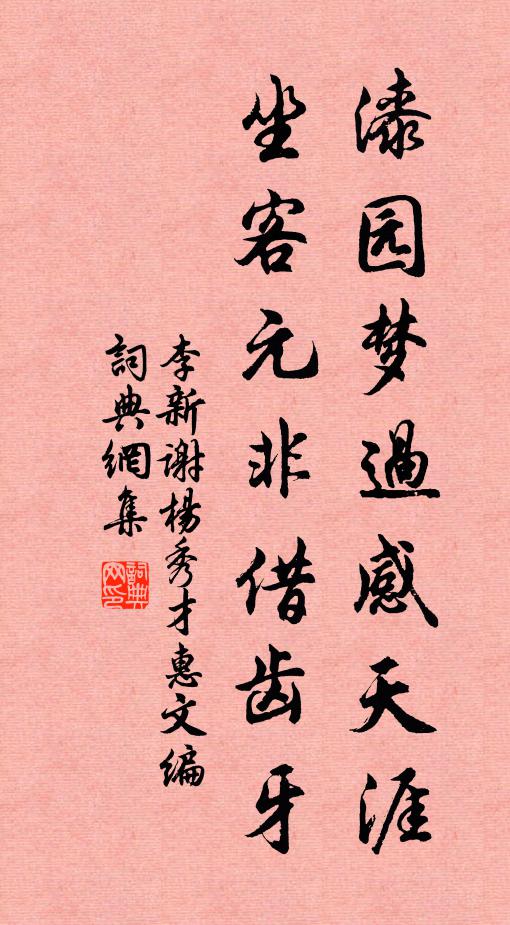 漆园梦過感天涯
坐客元非借齿牙
李新谢楊秀才惠文编
詞典網集
詞典网印